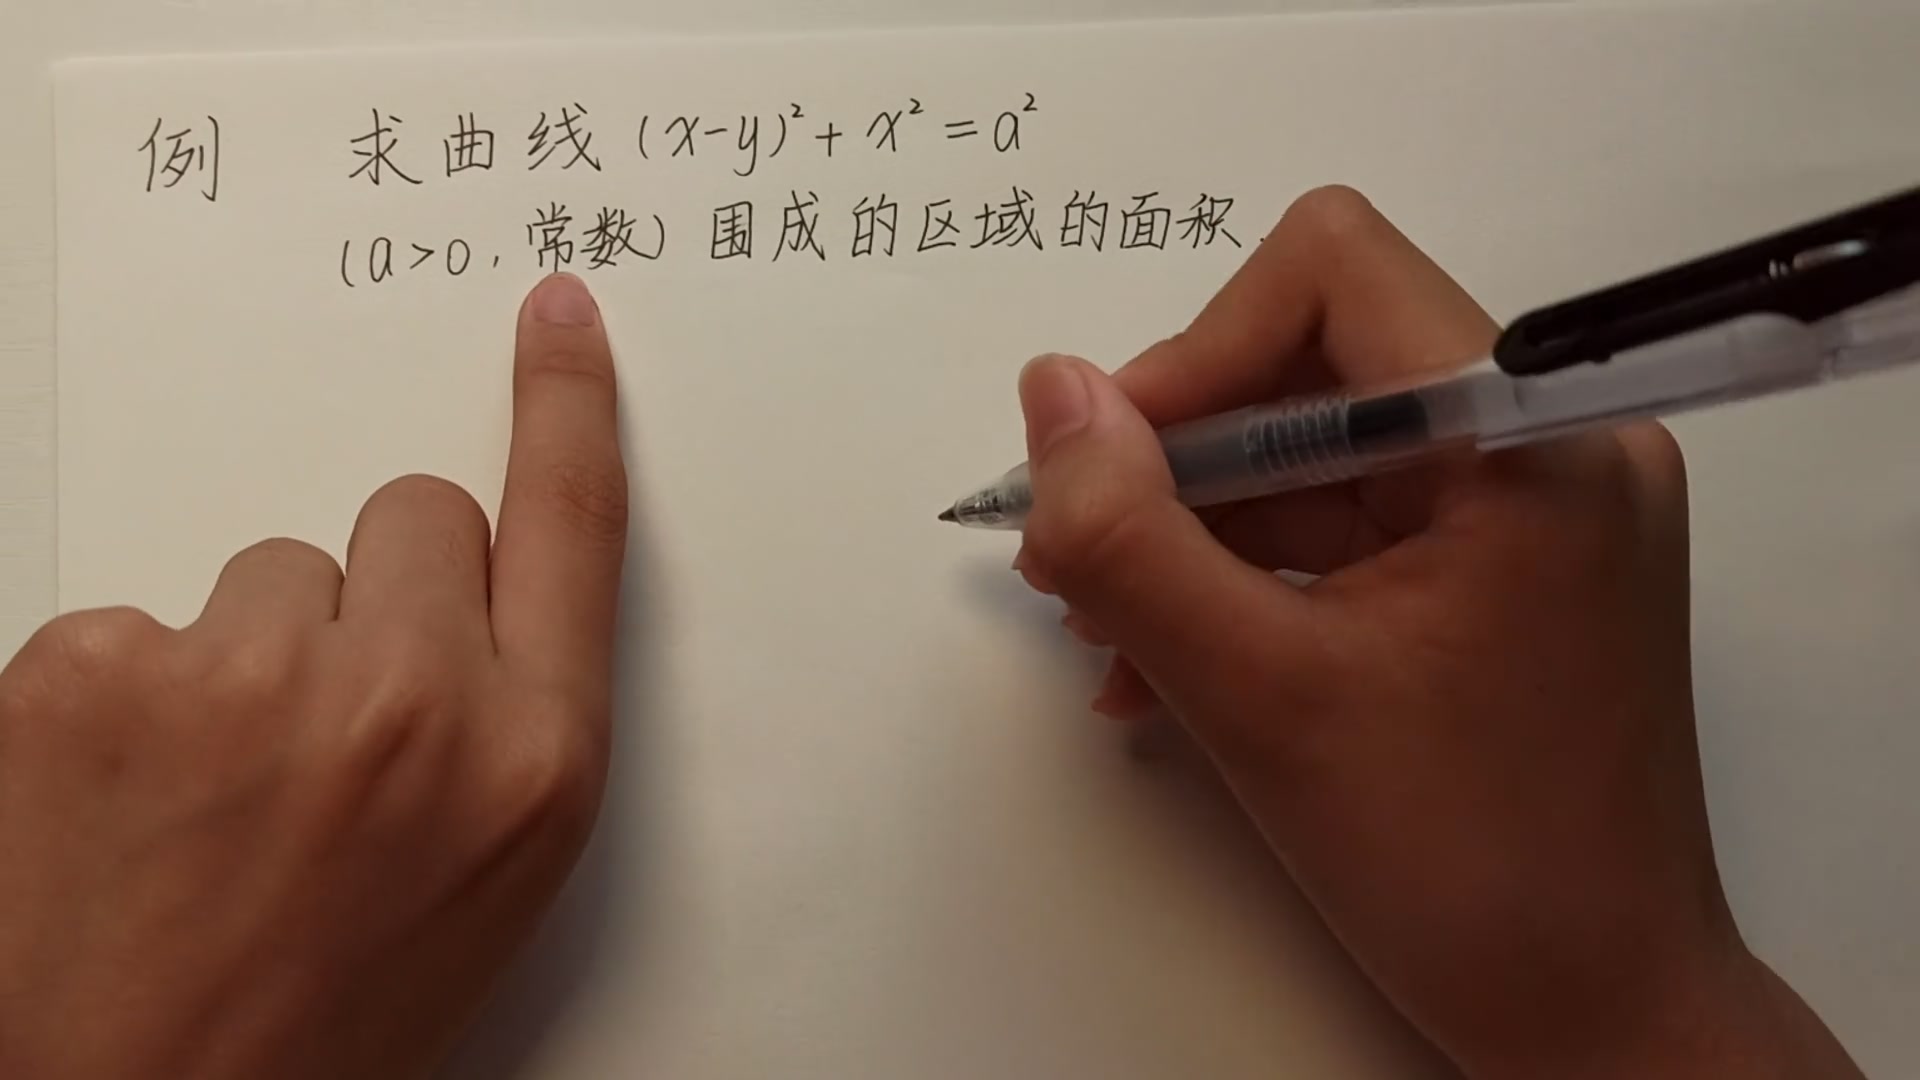 例 求曲线 (x-y)² + x² = a²
(a>0, 常数) 围成的区域的面积.